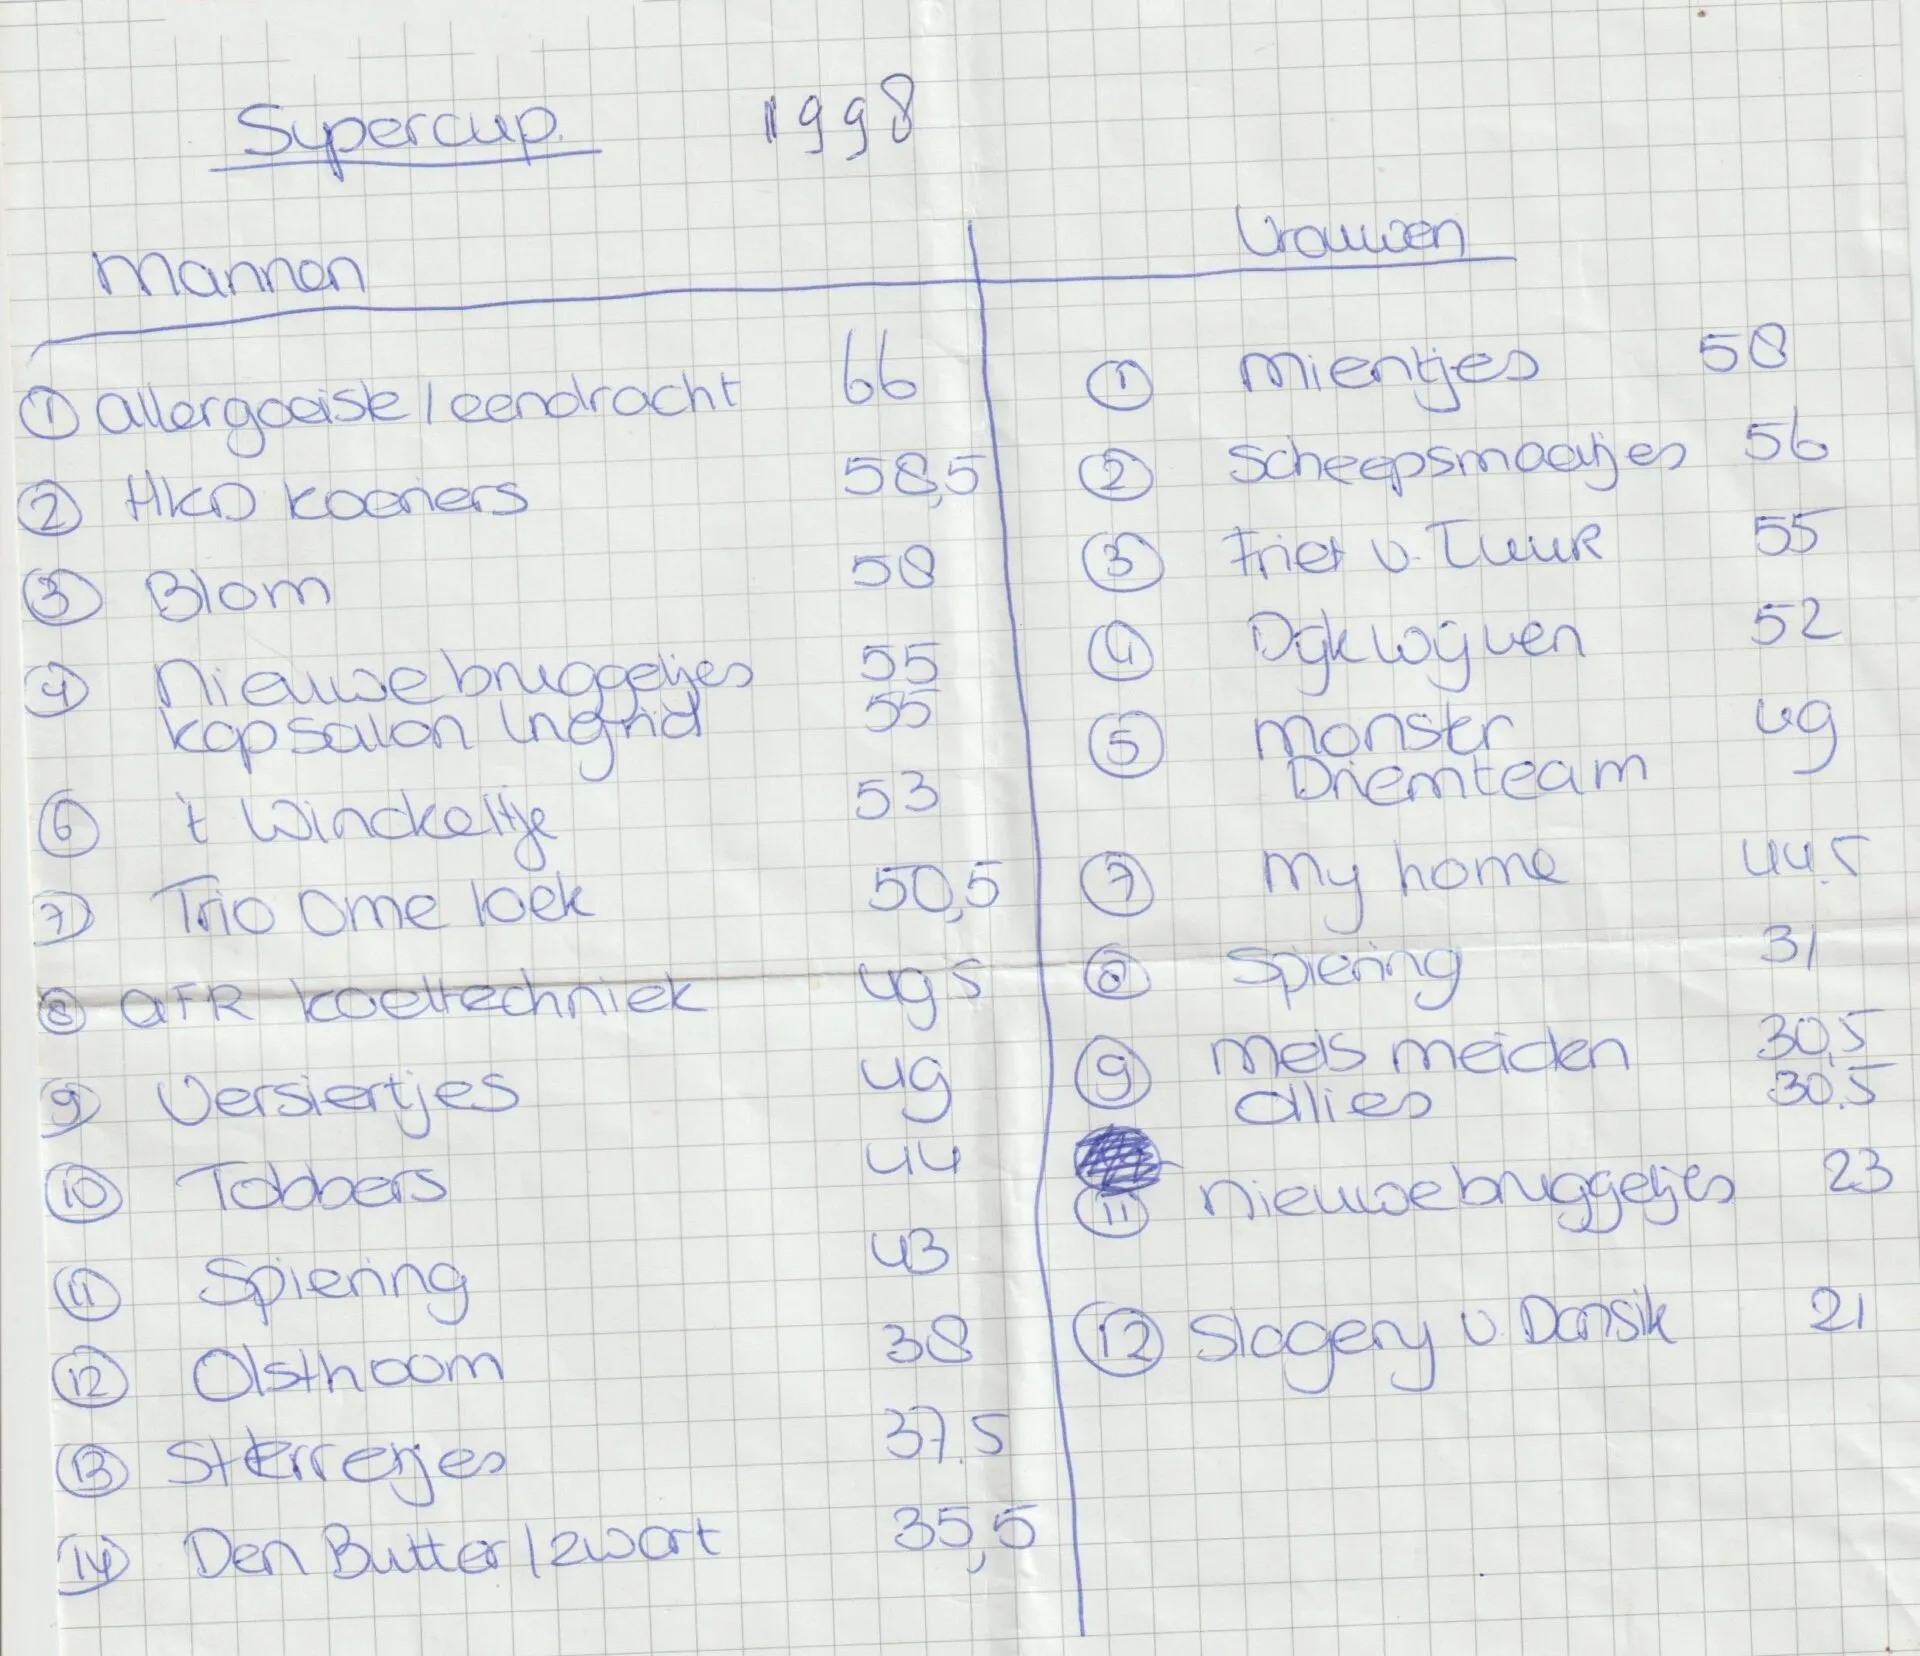 Supercup. 1998
Mannen
① allergoeiste / eendracht 66
② HKD koeriers 58,5
③ Blom 58
④ Nieuwebruggetjes 55
kapsalon Ingrid 55
⑥ 't Winckeltje 53
⑦ Trio Ome loek 50,5
⑧ AFR koeltechniek 49 5
⑨ Versiertjes 49
⑩ Tobbers 44
⑪ Spiering 43
⑫ Olsthoorn 38
⑬ Sterretjes 37.5
⑭ Den Butter / zwart 35,5
Vrouwen
① Mientjes 58
② Scheepsmaatjes 56
③ Friet v. Tuur 55
④ Dijkwijven 52
⑤ Monster 49
Driemteam
⑦ My home 44.5
⑧ Spiering 31
⑨ Mels meiden 30,5
allies 30.5
⑪ Nieuwebruggetjes 23
⑫ Slagerij v. Dansik 21